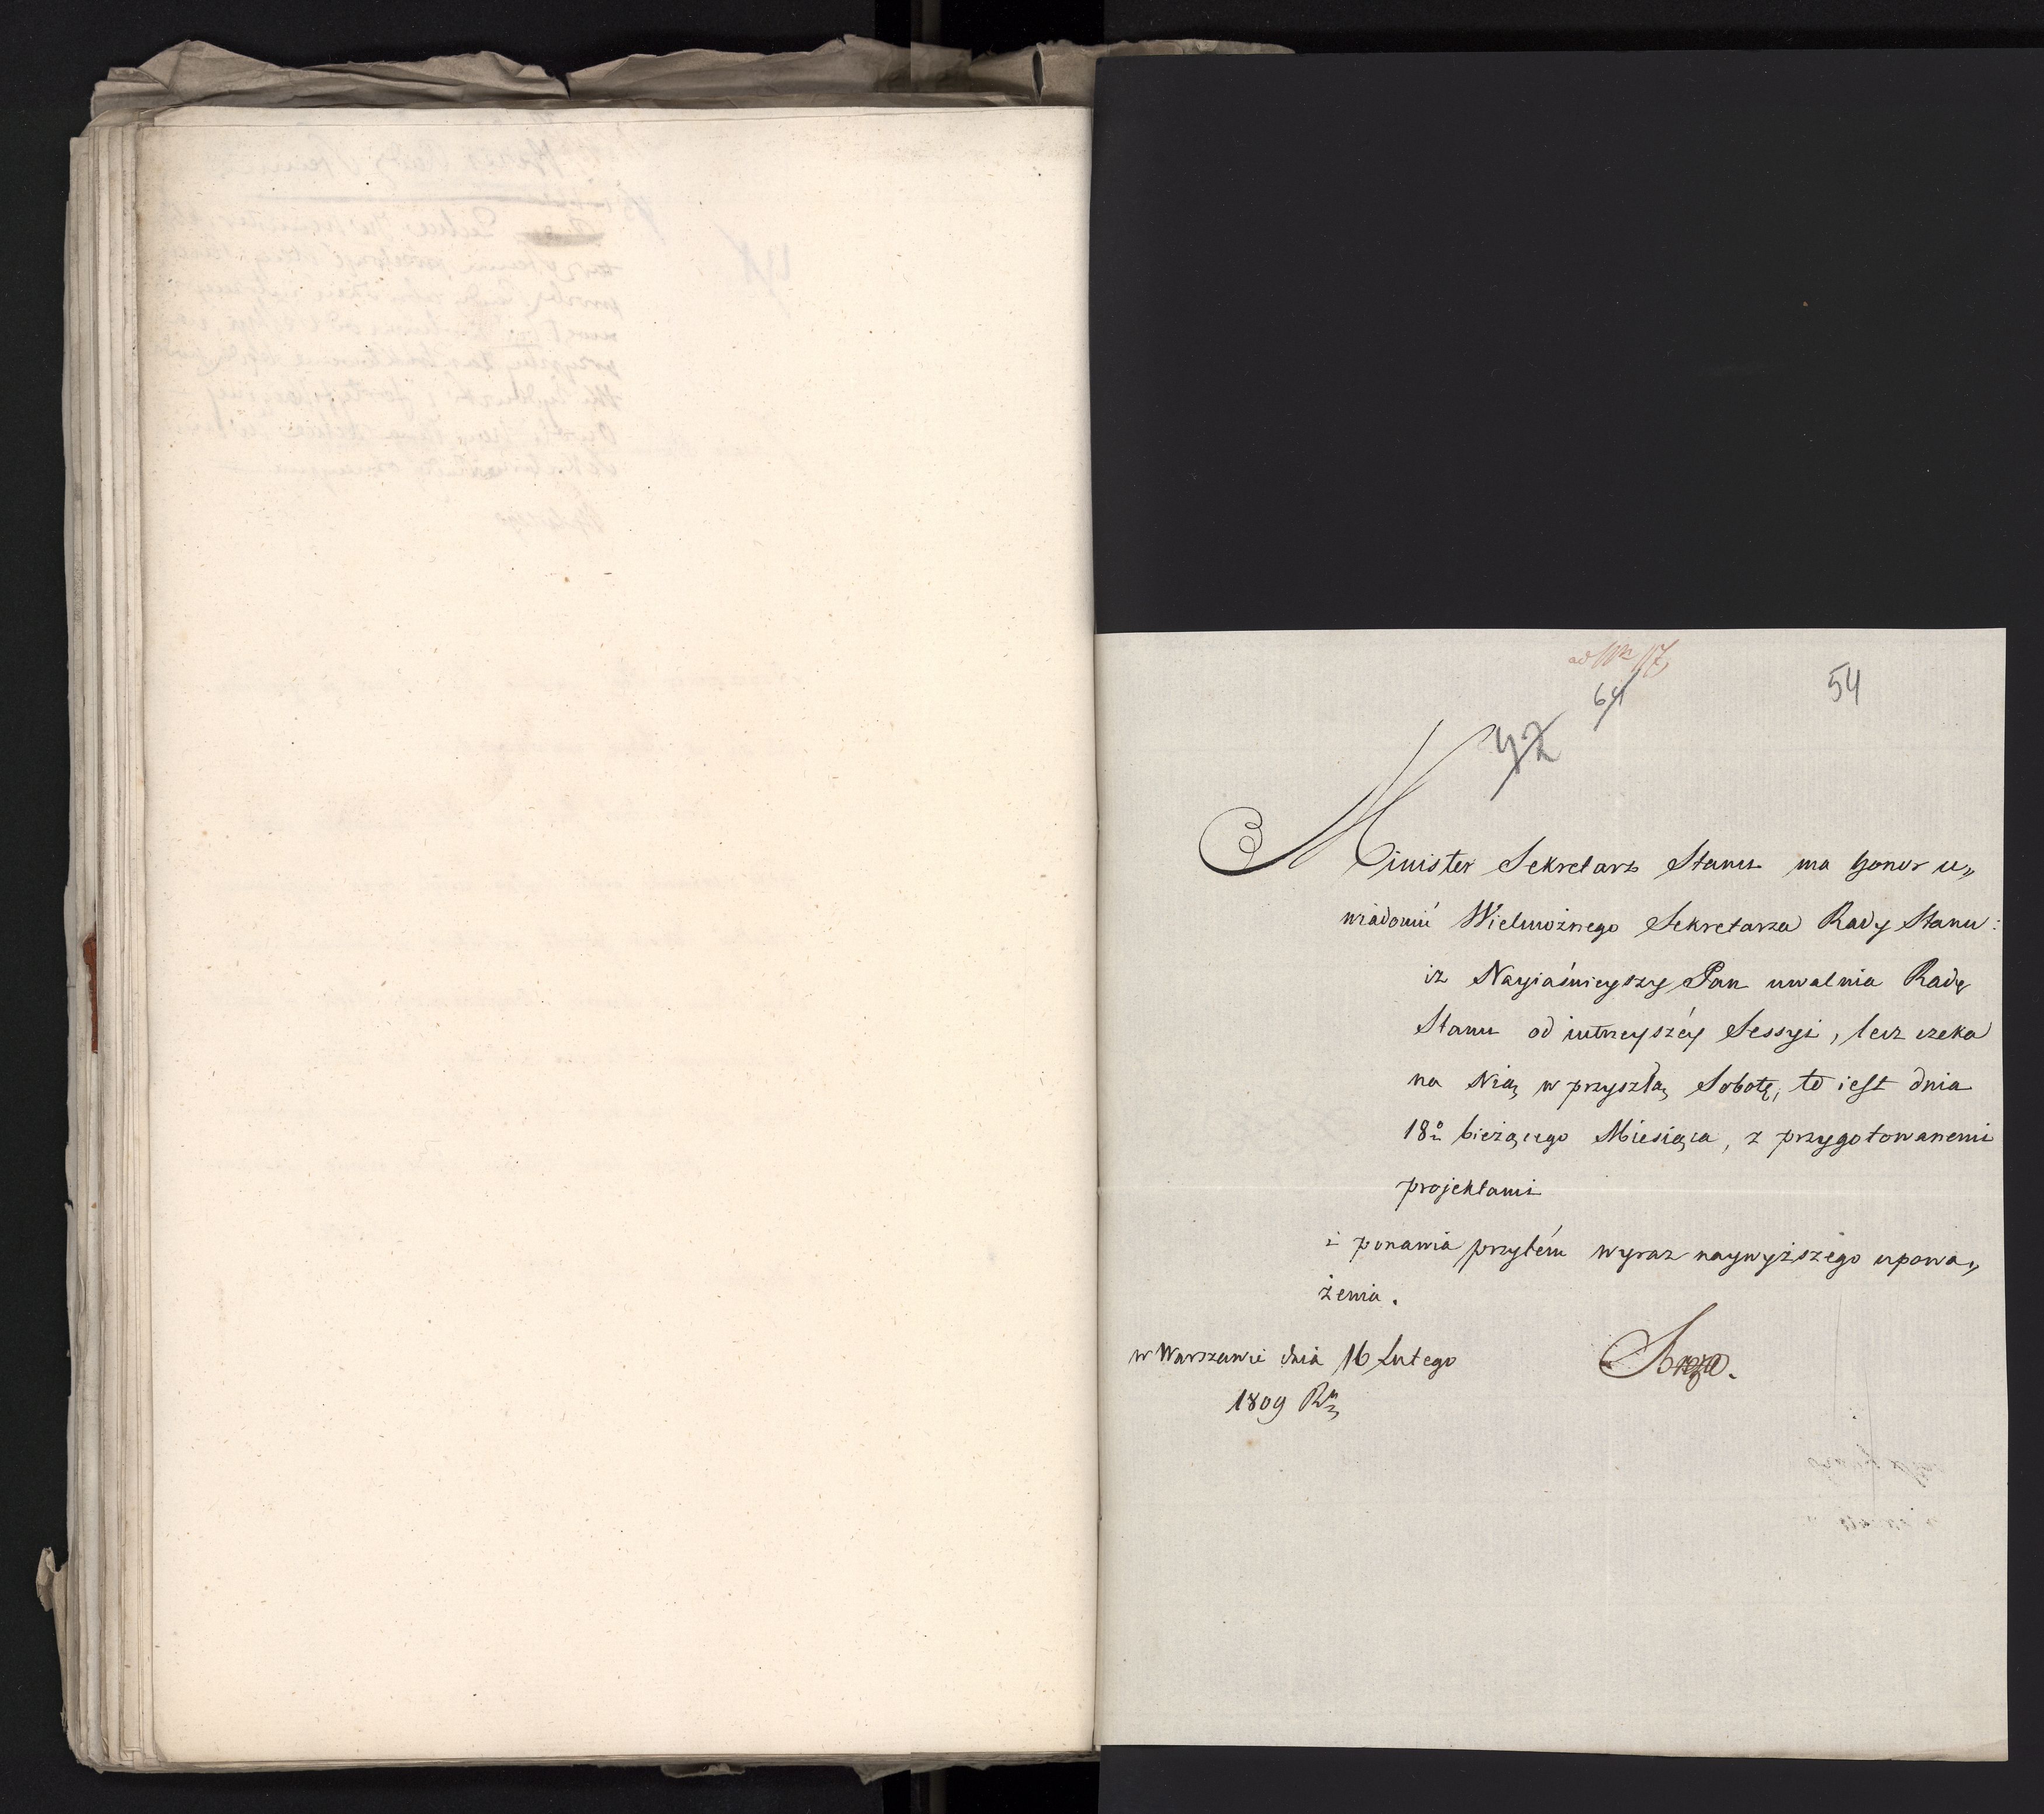 ad Nr 117
64
54
42
Minister Sekretarz Stanu ma honor u„
wiadomić Wielmożnego Sekretarza Rady Stanu:
iż Nayiaśnieyszy Pan uwalnia Radę
Stanu od iutrzeyszéy Sessyi, lecz czeka
na Nią w przyszłą Sobotę, to iest dnia
18º bieżącego Miesiąca, z przygotowanemi
projektami
i ponawia przytém wyraz naywyższego upowa„
żenia.
w Warszawie dnia 16 Lutego
Breza.
1809 Rⁿ